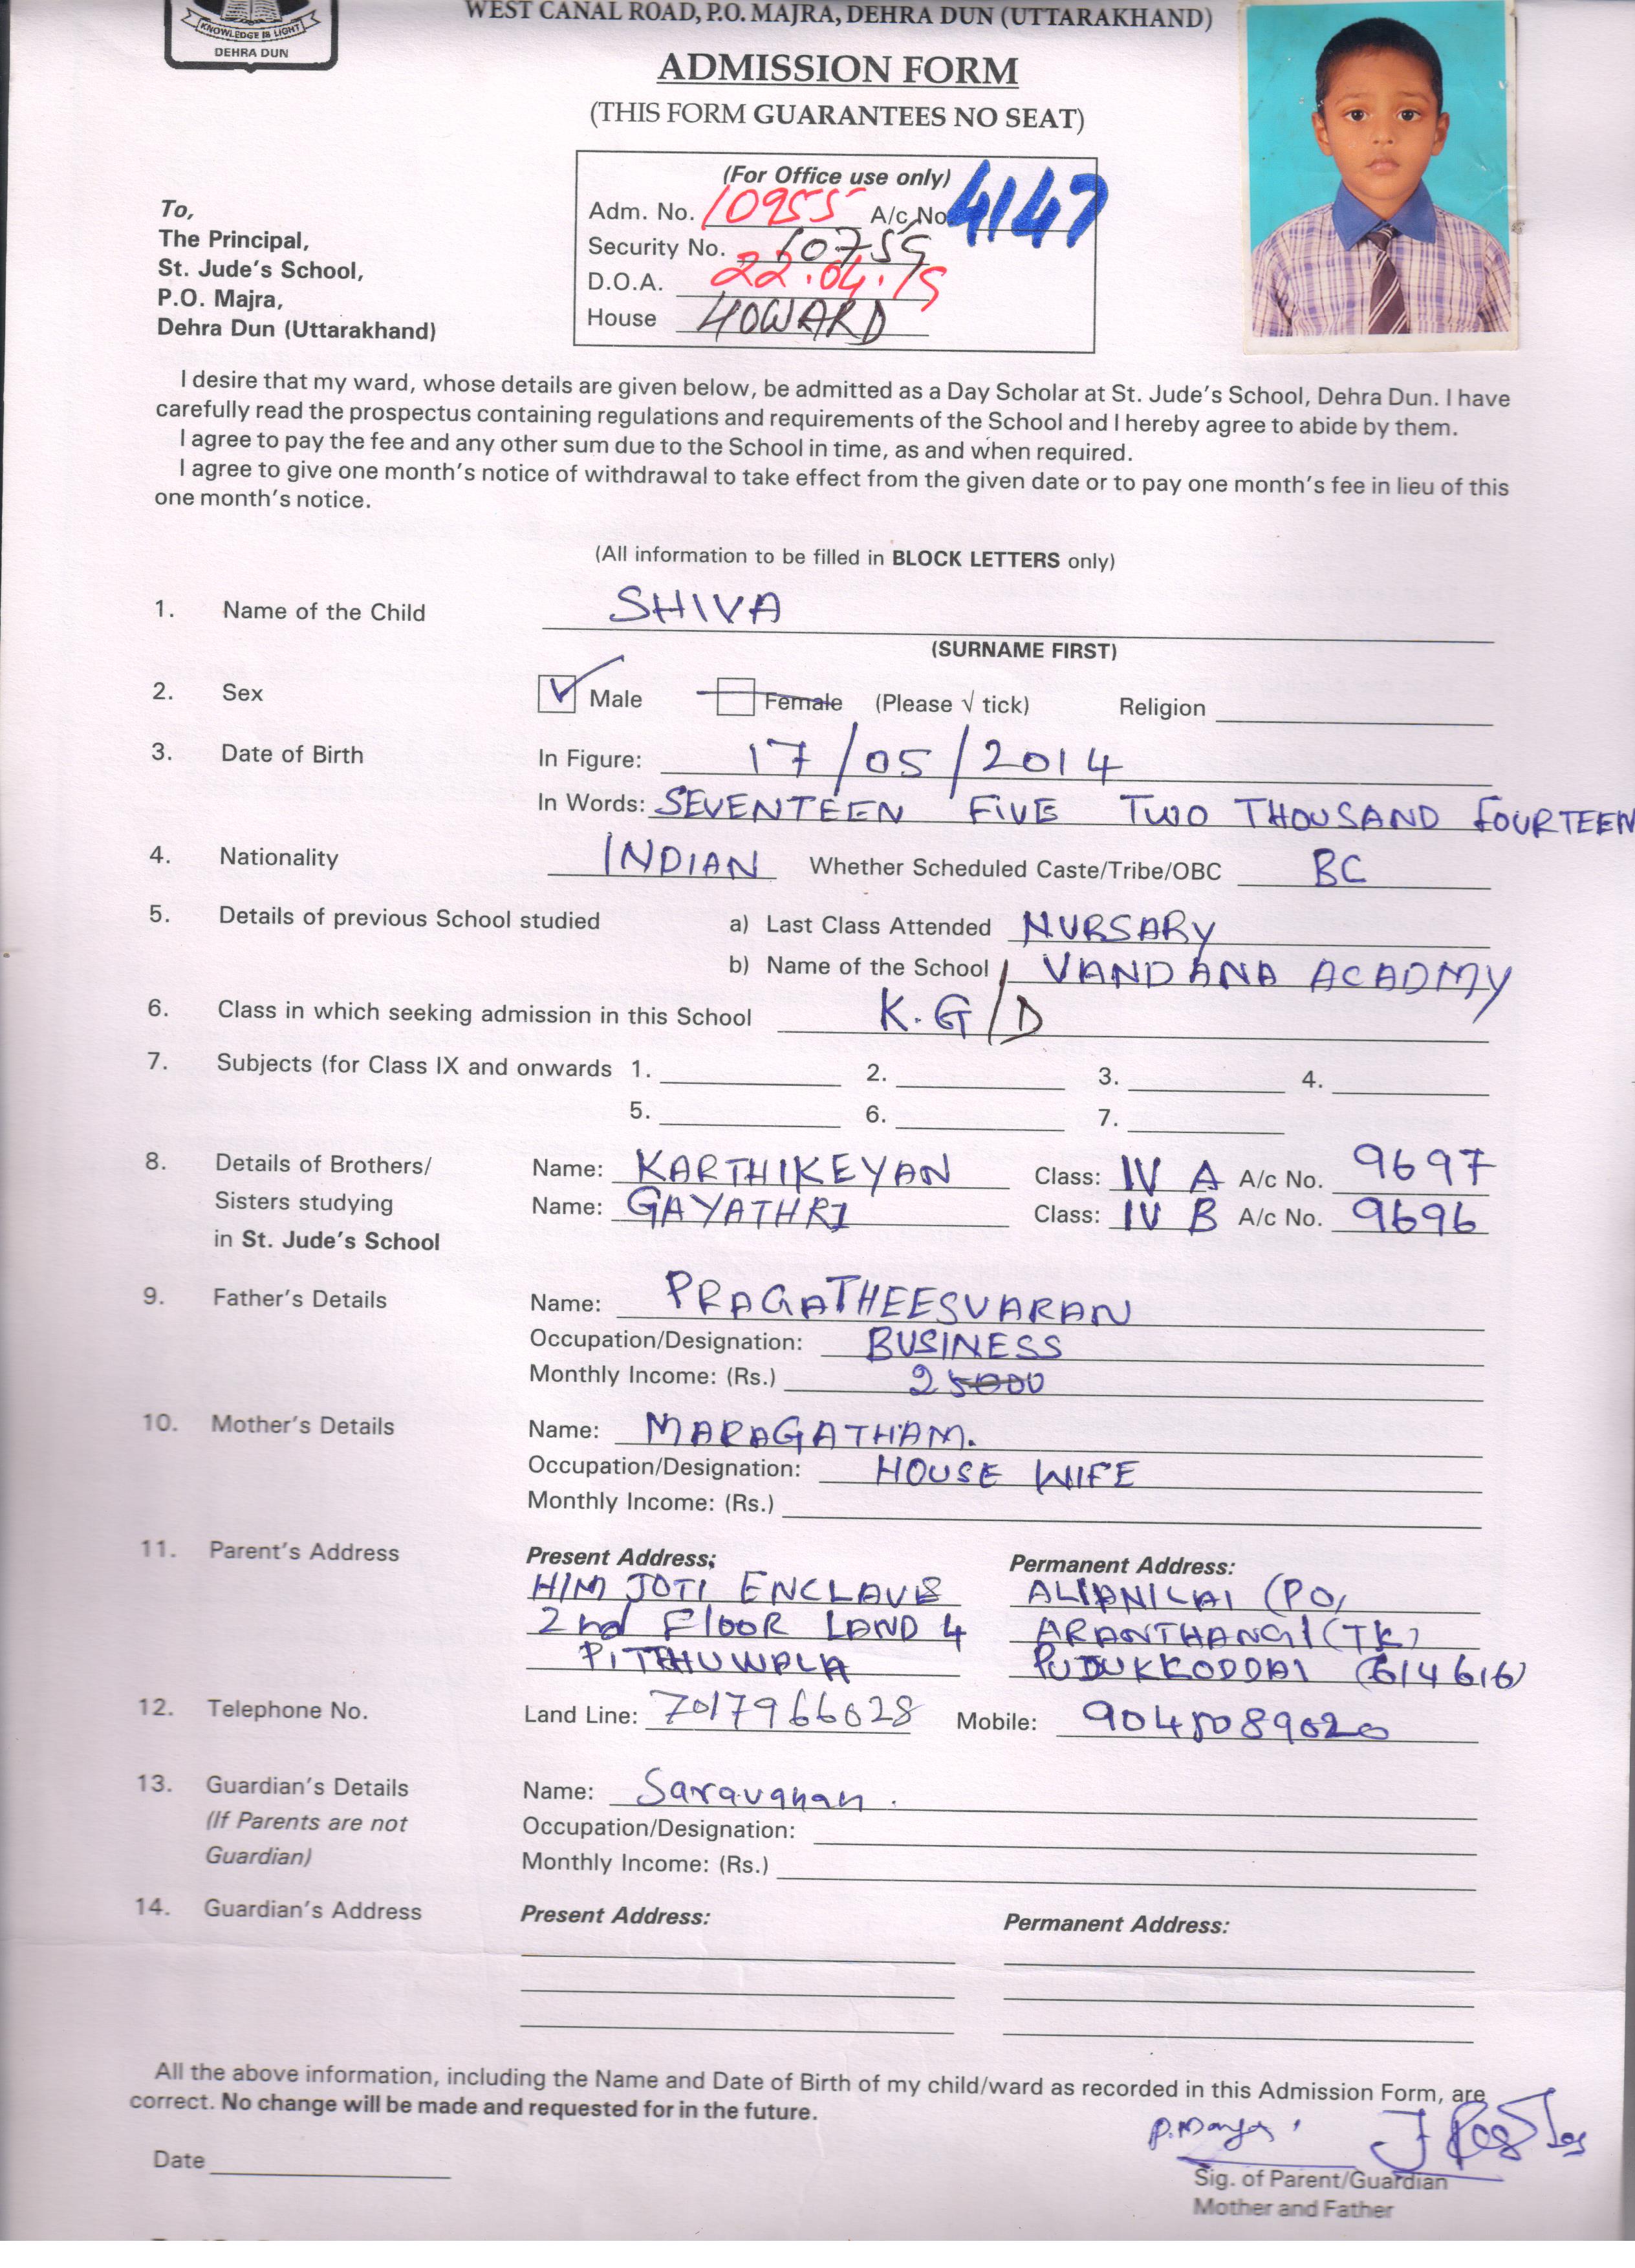 KNOWLEDGE IS LIGHT
DEHRA DUN
WEST CANAL ROAD, P.O. MAJRA, DEHRA DUN (UTTARAKHAND)
ADMISSION FORM
(THIS FORM GUARANTEES NO SEAT)
(For Office use only)
Adm. No. 10955 A/c No 4147
Security No. 10755
D.O.A. 22.04.19
House HOWARD
To,
The Principal,
St. Jude's School,
P.O. Majra,
Dehra Dun (Uttarakhand)
I desire that my ward, whose details are given below, be admitted as a Day Scholar at St. Jude's School, Dehra Dun. I have
carefully read the prospectus containing regulations and requirements of the School and I hereby agree to abide by them.
I agree to pay the fee and any other sum due to the School in time, as and when required.
I agree to give one month's notice of withdrawal to take effect from the given date or to pay one month's fee in lieu of this
one month's notice.
(All information to be filled in BLOCK LETTERS only)
1. Name of the Child SHIVA
(SURNAME FIRST)
2. Sex Male Female (Please √ tick) Religion
3. Date of Birth In Figure: 17/05/2014
In Words: SEVENTEEN FIVE TWO THOUSAND FOURTEEN
4. Nationality INDIAN Whether Scheduled Caste/Tribe/OBC BC
5. Details of previous School studied a) Last Class Attended NURSARY
b) Name of the School VANDANA ACADMY
6. Class in which seeking admission in this School K.G/D
7. Subjects (for Class IX and onwards 1. 2. 3. 4.
5. 6. 7.
8. Details of Brothers/ Name: KARTHIKEYAN Class: IV A A/c No. 9697
Sisters studying Name: GAYATHRI Class: IV B A/c No. 9696
in St. Jude's School
9. Father's Details Name: PRAGATHEESVARAN
Occupation/Designation: BUSINESS
Monthly Income: (Rs.) 25000
10. Mother's Details Name: MARAGATHAM.
Occupation/Designation: HOUSE WIFE
Monthly Income: (Rs.)
11. Parent's Address Present Address: Permanent Address:
HIM JOTI ENCLAVE (PO,
2nd FLOOR LAND 4 ARANTHANGI (TK)
PITHUWALA PUDUKKODDAI (614616)
12. Telephone No. Land Line: 7017966028 Mobile: 9045089020
13. Guardian's Details Name: Saravanan.
(If Parents are not Occupation/Designation:
Guardian) Monthly Income: (Rs.)
14. Guardian's Address Present Address: Permanent Address:
All the above information, including the Name and Date of Birth of my child/ward as recorded in this Admission Form, are
correct. No change will be made and requested for in the future.
Date
Sig. of Parent/Guardian
Mother and Father